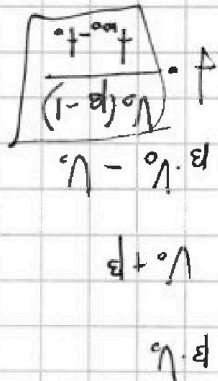 β · V₀
V₀ + β
β · V₀ - V₀
V₀(β-1) / t₁₀₀-t₀